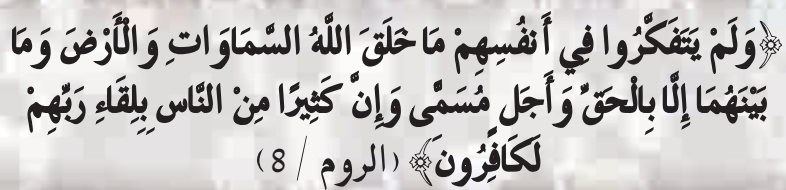 ﴿وَلَمْ يَتَفَكَّرُوا فِي أَنفُسِهِمْ مَا خَلَقَ اللَّهُ السَّمَاوَاتِ وَالْأَرْضَ وَمَا
بَيْنَهُمَا إِلَّا بِالْحَقِّ وَأَجَلٍ مُسَمًّى وَإِنَّ كَثِيرًا مِنْ النَّاسِ بِلِقَاءِ رَبِّهِمْ
لَكَافِرُونَ﴾ (الروم / 8)